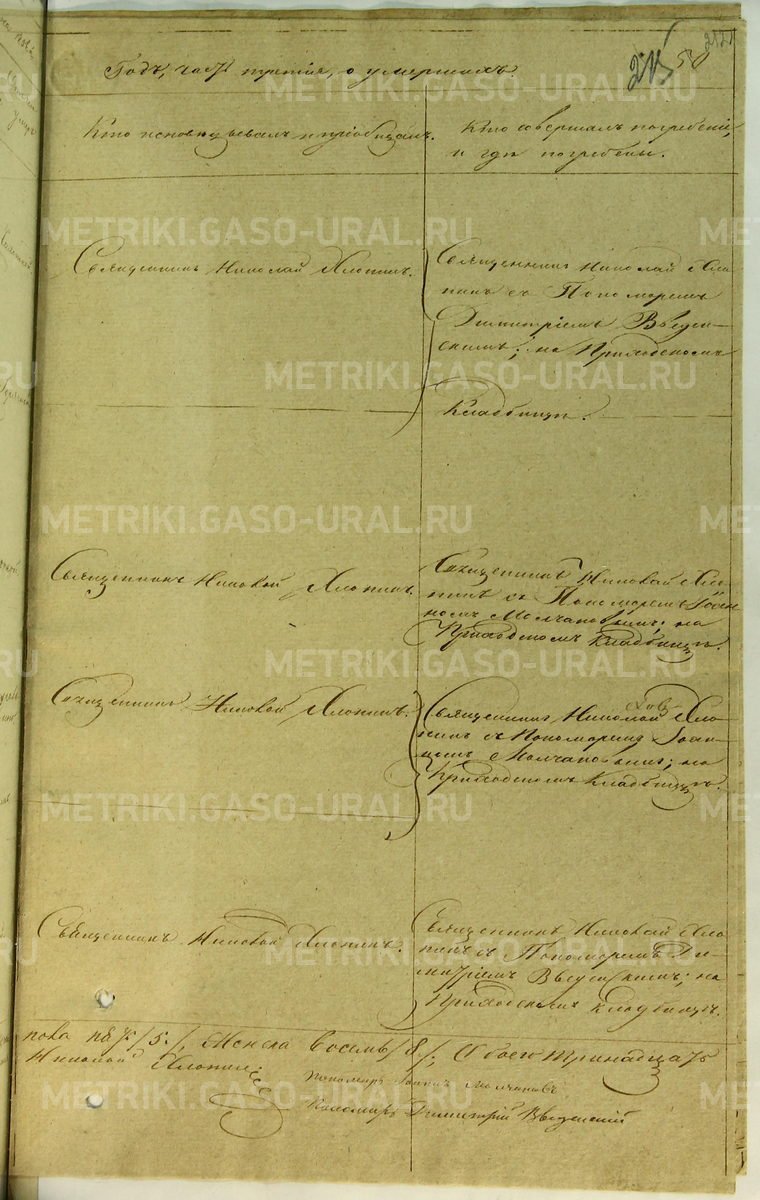 215
50
Годъ, часть третiя, о умершихъ.
Кто исповѣдывалъ и приобщалъ.
Кто совершалъ погребенiе,
и гдѣ погребены.
METRIKI.GASO-URAL.RU
Священникъ Николай Хлопинъ.
Священникъ Николай Хло-
пинъ съ Пономаремъ
Димитрiемъ Введен-
скимъ; на Приходскомъ
Кладбищѣ.
Священникъ Николай Хлопинъ.
Священникъ Николай Хло-
пинъ съ Пономаремъ Iоан-
номъ Молчановымъ; на
Приходскомъ Кладбищѣ.
Священникъ Николай Хлопинъ.
Священникъ Николай Хло-
пинъ съ Пономаремъ Iоан-
номъ Молчановымъ; на
Приходскомъ Кладбищѣ.
Священникъ Николай Хлопинъ.
Священникъ Николай Хло-
пинъ съ Пономаремъ Ди-
митрiемъ Введенскимъ; на
Приходскомъ Кладбищѣ.
пола пять /5./, Женска восемь /8/, Обоего тринадцать
Николай Хлопинъ
Пономарь Iоаннъ Молчановъ
Пономарь Димитрiй Введенскiй